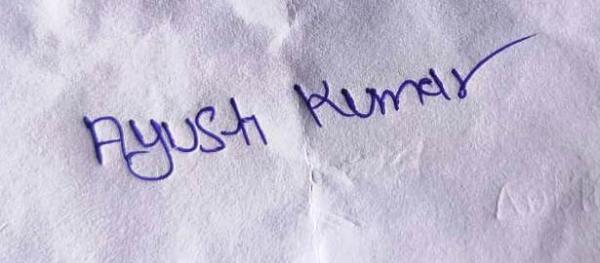 Ayush Kumar